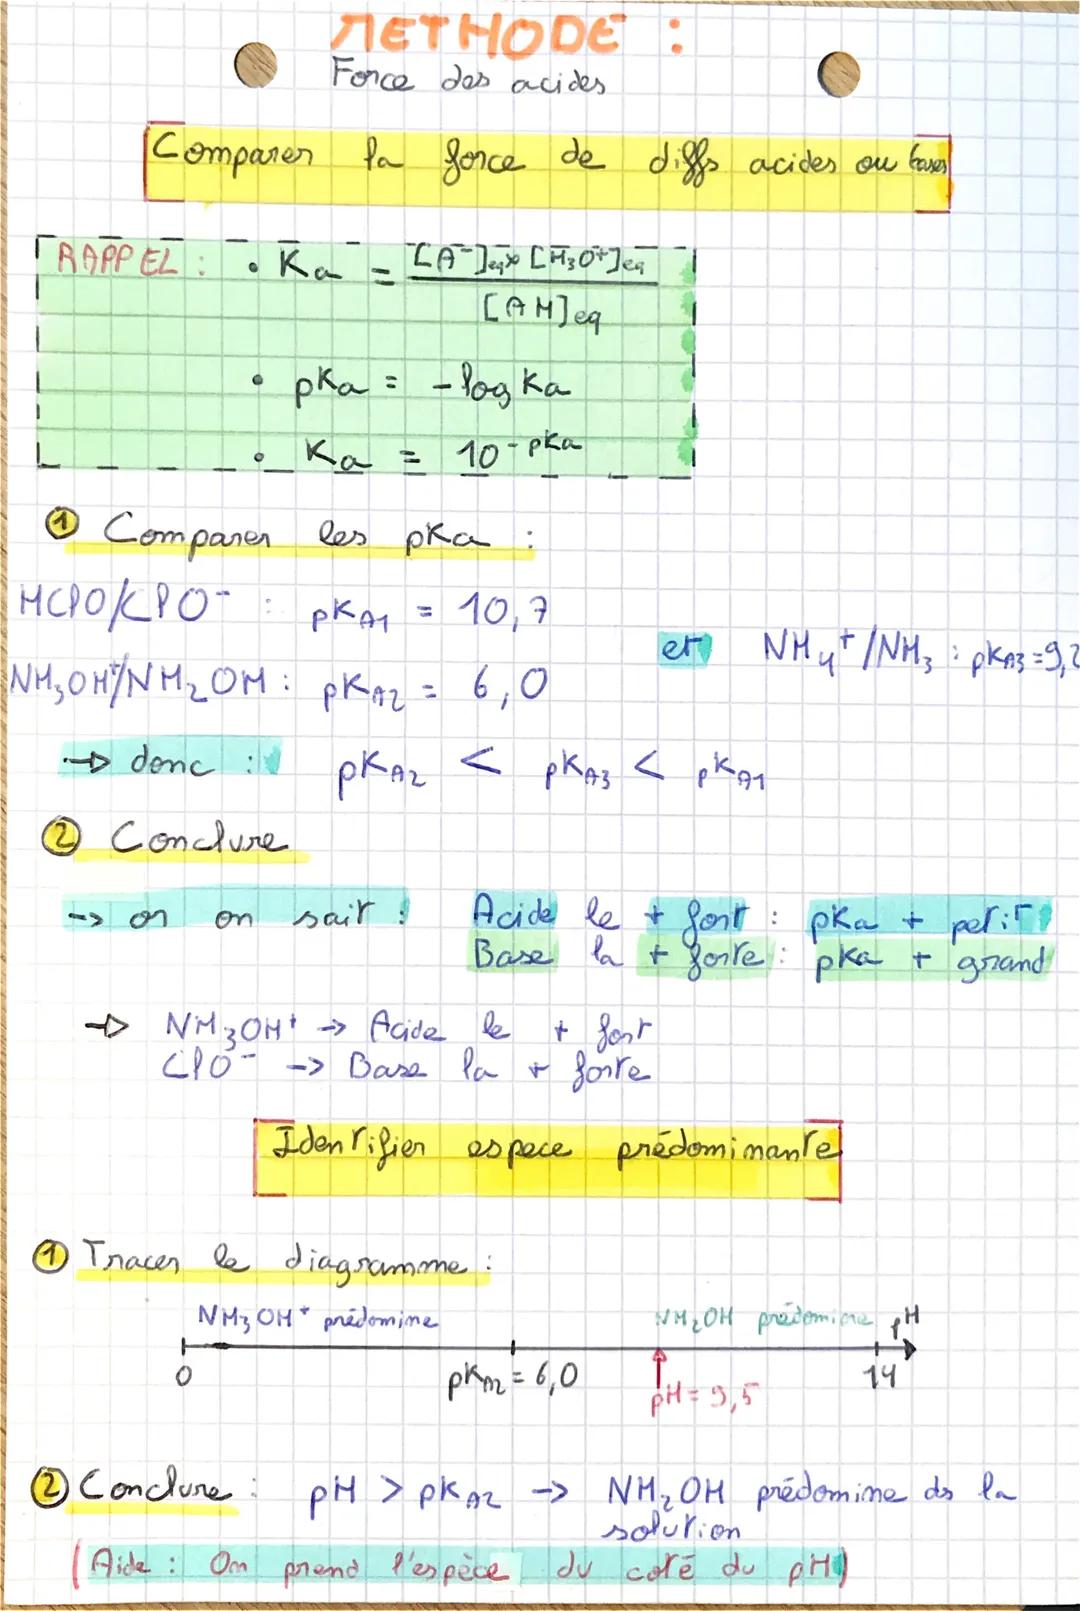 METHODE :
Force des acides
Comparer la force de diffs acides ou bases
RAPPEL : • Ka = [A-]eq x [H3O+]eq / [AH]eq
• pKa = -log Ka
• Ka = 10-pKa
① Comparer les pKa :
HClO/ClO- : pKA1 = 10,7
et NH4+/NH3 : pKA3 = 9,2
NH3OH+/NH2OH : pKA2 = 6,0
→ donc : pKA2 < pKA3 < pKA1
② Conclure
→ or on sait : Acide le + fort : pKa + petit
Base la + forte : pKa + grand
→ NH3OH+ → Acide le + fort
ClO- → Base la + forte
Identifier espece prédominante
① Tracer le diagramme :
NH3OH+ prédomine NH2OH prédomine pH
0 pKA2 = 6,0 14
pH = 9,5
② Conclure : pH > pKA2 → NH2OH prédomine ds la
solution
(Aide : On prend l'espèce du coté du pH)